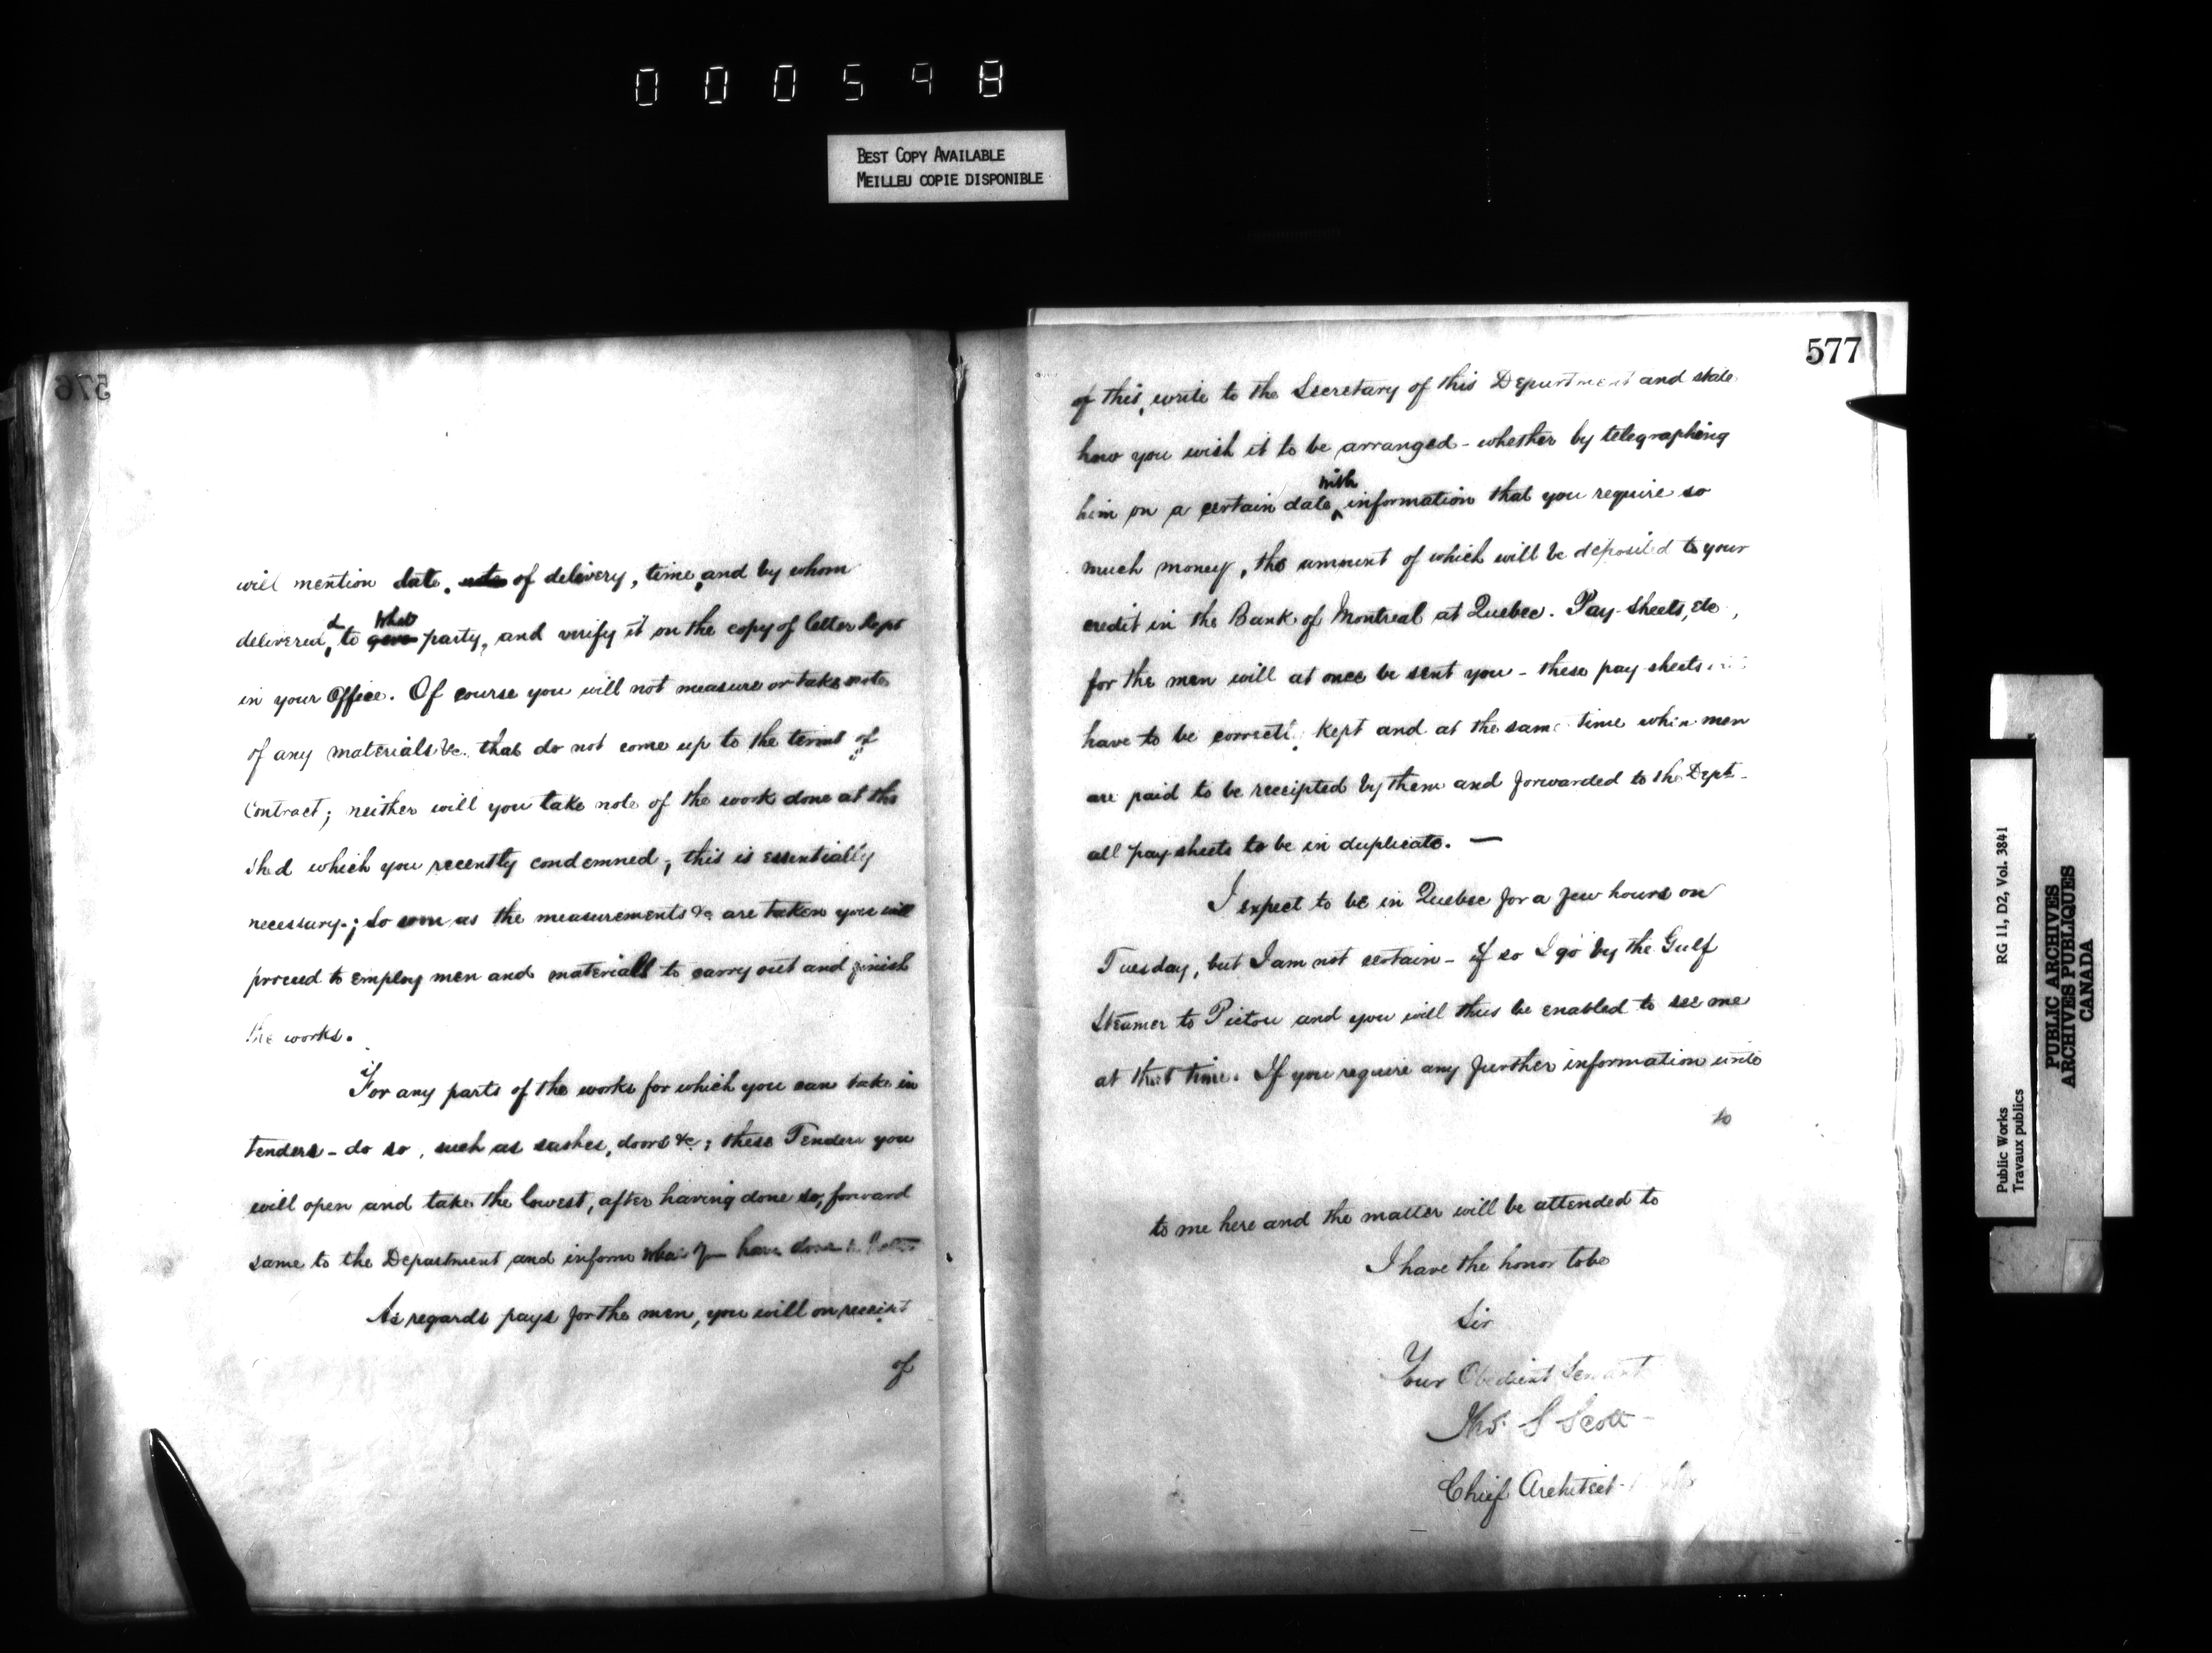 000598
BEST COPY AVAILABLE
MEILLEU COPIE DISPONIBLE
576
will mention date, of delivery, time, and by whom
delivered, & to what party, and verify it on the copy of letter kept
in your Office. Of course you will not measure or take note
of any materials &c. that do not come up to the terms of
Contract; neither will you take note of the work done at the
shed which you recently condemned; this is essentially
necessary; so soon as the measurements &c are taken you will
proceed to employ men and materials to carry out and finish
the works.
For any parts of the works for which you can take in
tenders - do so, such as sashes, doors &c; these Tenders you
will open and take the lowest, after having done so, forward
same to the Department and inform what you have done
As regards pays for the men, you will on receipt
of
577
of this, write to the Secretary of this Department and state
how you wish it to be arranged - whether by telegraphing
him on a certain date with information that you require so
much money, the amount of which will be deposited to your
credit in the Bank of Montreal at Quebec. Pay-Sheets, etc,
for the men will at once be sent you - these pay sheets
have to be correctly kept and at the same time when men
are paid to be receipted by them and forwarded to the Dept -
all pay sheets to be in duplicate. —
I expect to be in Quebec for a few hours on
Tuesday, but I am not certain - if so I go by the Gulf
Steamer to Pictou and you will thus be enabled to see me
at that time. If you require any further information write
to
to me here and the matter will be attended to
I have the honor to be
Sir
Your Obedient Servant
Thos. S Scott -
Chief Architect
Public Works
Travaux publics
RG 11, D2, Vol. 3841
PUBLIC ARCHIVES
ARCHIVES PUBLIQUES
CANADA